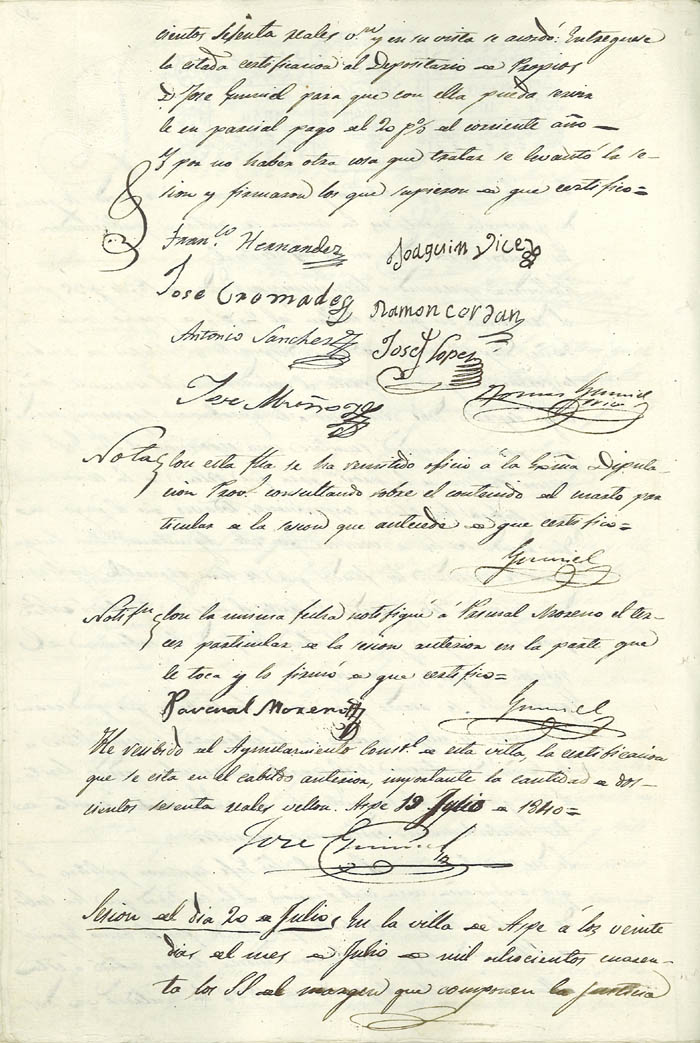 cientos sesenta reales v.n y en su vista se acordó: Entreguese
la citada certificacion al Depositario de Propios
D. Jose Gumiel para que con ella pueda
le en parcial pago del 20 p% del corriente año —
Y por no haber otra cosa que tratar se levantó la se-
sion y firmaron los que supieron de que certifico=
Fran.co Hernandez
Joaquin Vicedo
Jose Cremades
Ramon Cerdan
Antonio Sanchez
Josef Lopez
Jose Muñoz
Tomas Gumiel
Nota
Con esta fha se ha remitido oficio á la Exma Diputa-
cion Prov.l consultando sobre el contenido del cuarto par
ticular de la sesion que antecede de que certifico=
Gumiel
Notif.n
Con la misma fecha notifiqué á Pascual Moreno el ter-
cer particular de la sesion anterior en la parte que
le toca y lo firmó de que certifico=
Pascual Moreno
Gumiel
He recibido del Ayuntamiento Const.l de esta villa, la certificacion
que se cita en el cabildo anterior, importante la cantidad de dos-
cientos sesenta reales vellon. Aspe 19 Julio de 1840=
Jose Gumiel
Sesion del dia 20 de Julio, En la villa de Aspe á los veinte
dias del mes de Julio de mil ochocientos cuaren-
ta los SS del margen que componen la Justicia